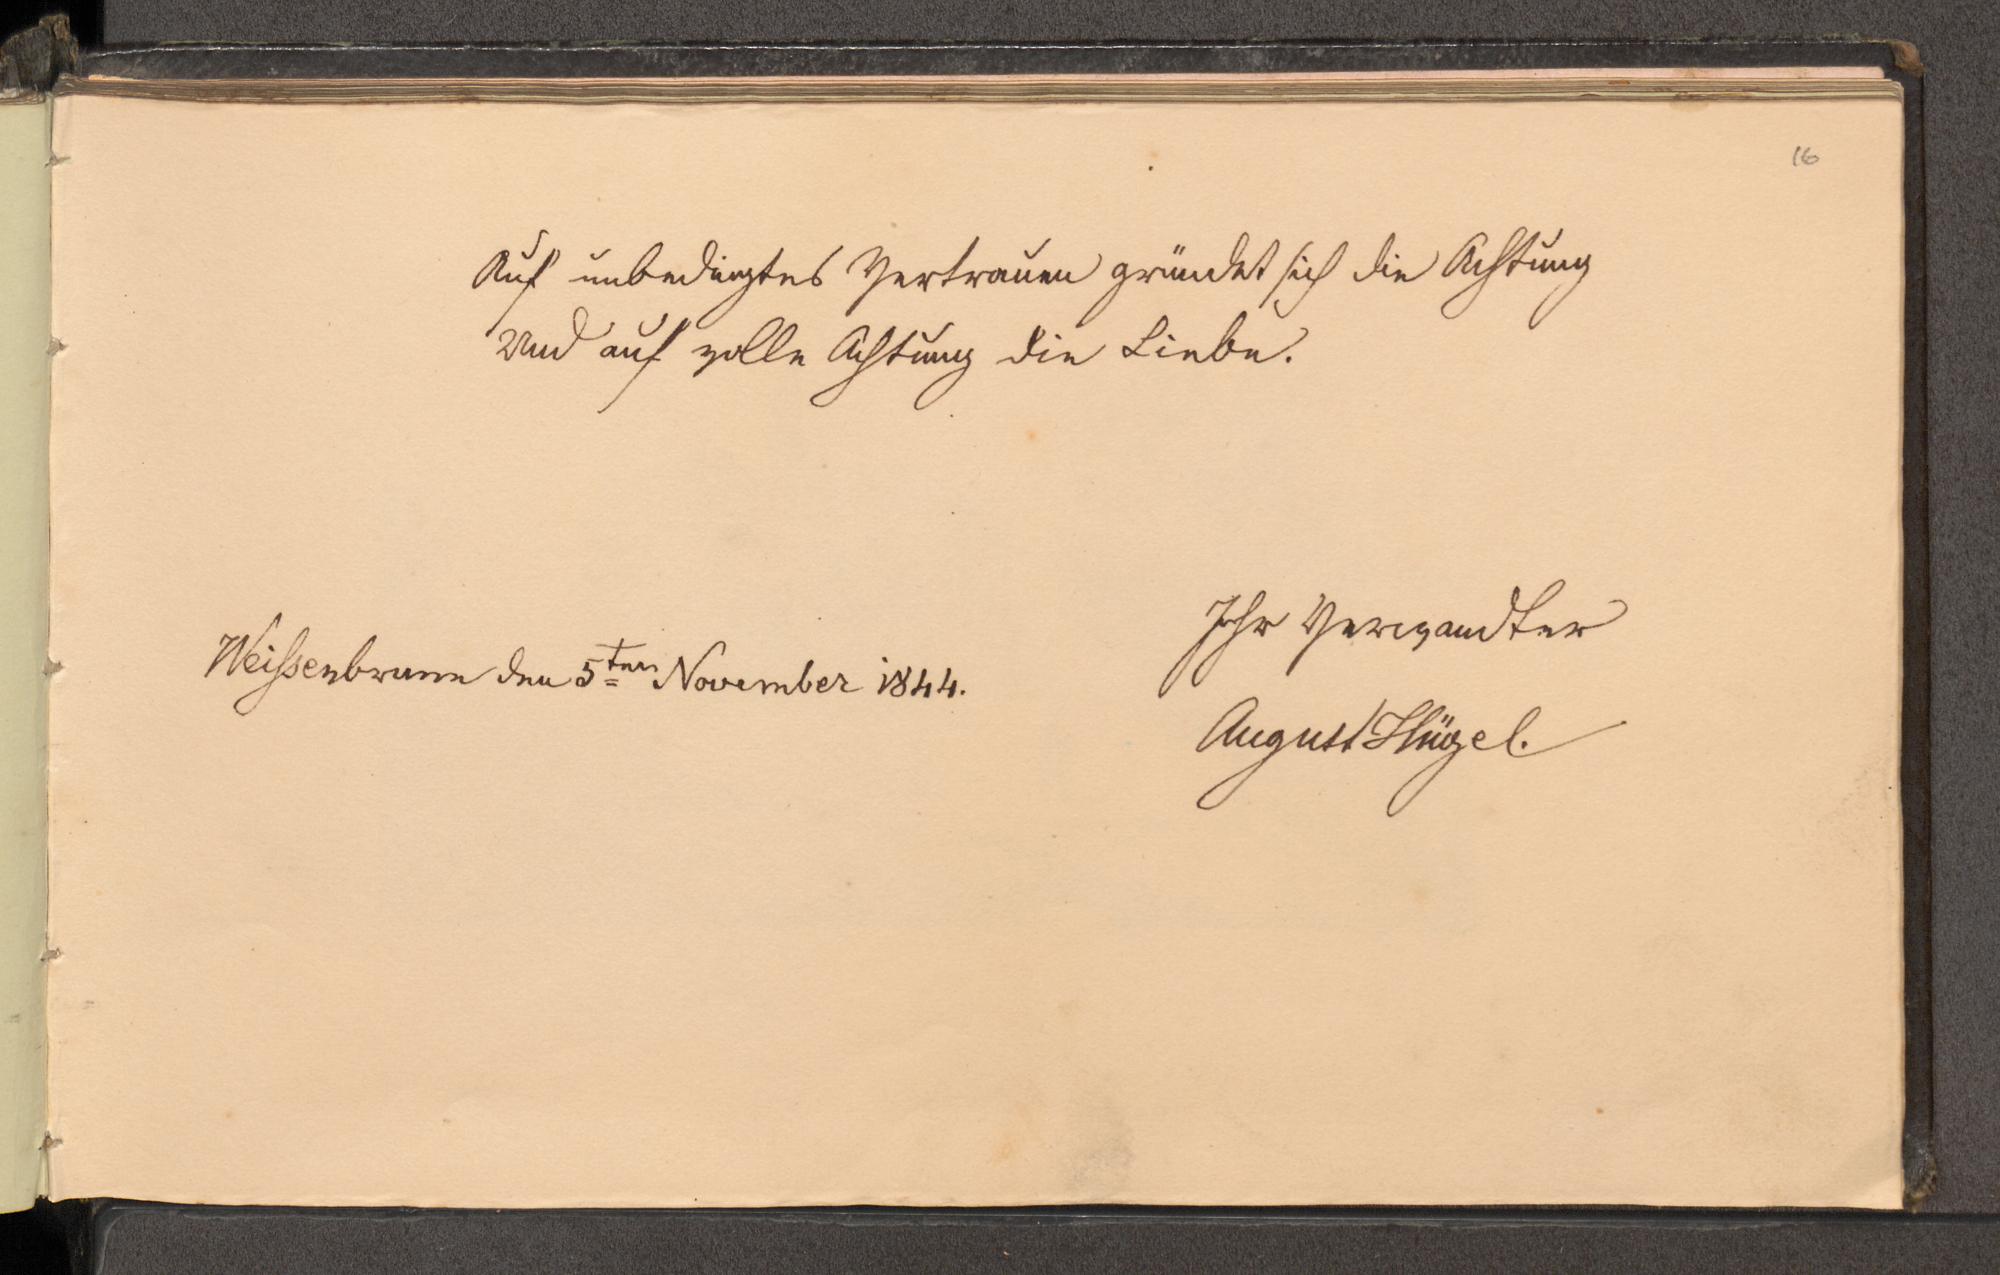 16
Auf unbedingtes Vertrauen gründet sich die Achtung
Und auf volle Achtung die Liebe.
Ihr Verwandter
Weißenbrunn den 5ten November 1844.
August Flügel.